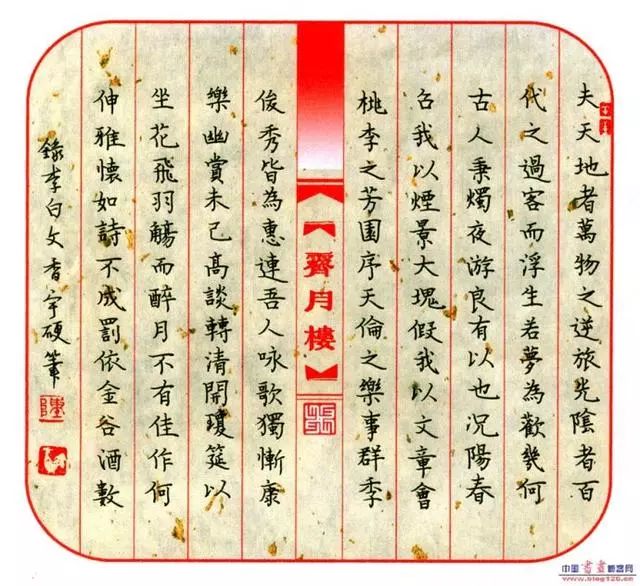 夫天地者萬物之逆旅光陰者百
代之過客而浮生若夢為歡幾何
古人秉燭夜游良有以也況陽春
召我以煙景大塊假我以文章會
桃李之芳園序天倫之樂事群季
【霽月樓】
俊秀皆為惠連吾人咏歌獨慚康
樂幽賞未已高談轉清開瓊筵以
坐花飛羽觴而醉月不有佳作何
伸雅懷如詩不成罰依金谷酒數
錄李白文香宇硬筆